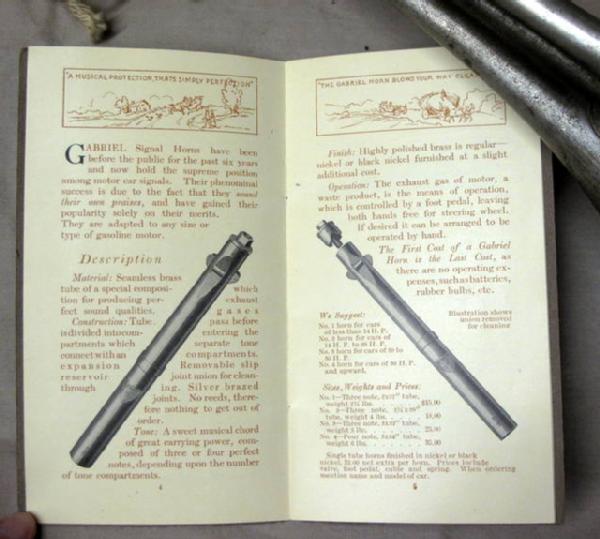 "A MUSICAL PROTECTION, THATS SIMPLY PERFECTION"
GABRIEL Signal Horns have been
before the public for the past six years
and now hold the supreme position
among motor car signals. Their phenomenal
success is due to the fact that they sound
their own praises, and have gained their
popularity solely on their merits.
They are adapted to any size or
type of gasoline motor.
Description
Material: Seamless brass
tube of a special composi-
tion for producing per-
fect sound qualities.
Construction: Tube
is divided into com-
partments which
connect with an
expansion
reservoir
through
which
exhaust
gases
pass before
entering the
separate tone
compartments.
Removable slip
joint union for clean-
ing. Silver brazed
joints. No reeds, there-
fore nothing to get out of
order.
Tone: A sweet musical chord
of great carrying power, com-
posed of three or four perfect
notes, depending upon the number
of tone compartments.
4
"THE GABRIEL HORN BLOWS YOUR WAY
Finish: Highly polished brass is regular
nickel or black nickel furnished at a slight
additional cost.
Operation: The exhaust gas of motor, a
waste product, is the means of operation,
which is controlled by a foot pedal, leaving
both hands free for steering wheel.
If desired it can be arranged to be
operated by hand.
The First Cost of a Gabriel
Horn is the Last Cost, as
there are no operating ex-
penses, such as batteries,
rubber bulbs, etc.
Illustration shows
union removed
for cleaning
We Suggest:
No. 1 horn for cars
of less than 14 H. P.
No. 2 horn for cars of
No. 3 horn for cars of
No. 4 horn for cars of
and upward.
Sizes, Weights and Prices:
No. 1—Three note, tube,
weight lbs.
No. 2—Three note, tube,
tube, weight 4 lbs.
No. 3—Three note, tube,
weight 5 lbs.
No. 4—Four note, tube,
weight 6 lbs.
Single tube horns finished in nickel or black
nickel, net extra per horn. Prices include
valve, foot pedal, cable and spring. When ordering
mention name and model of car.
5